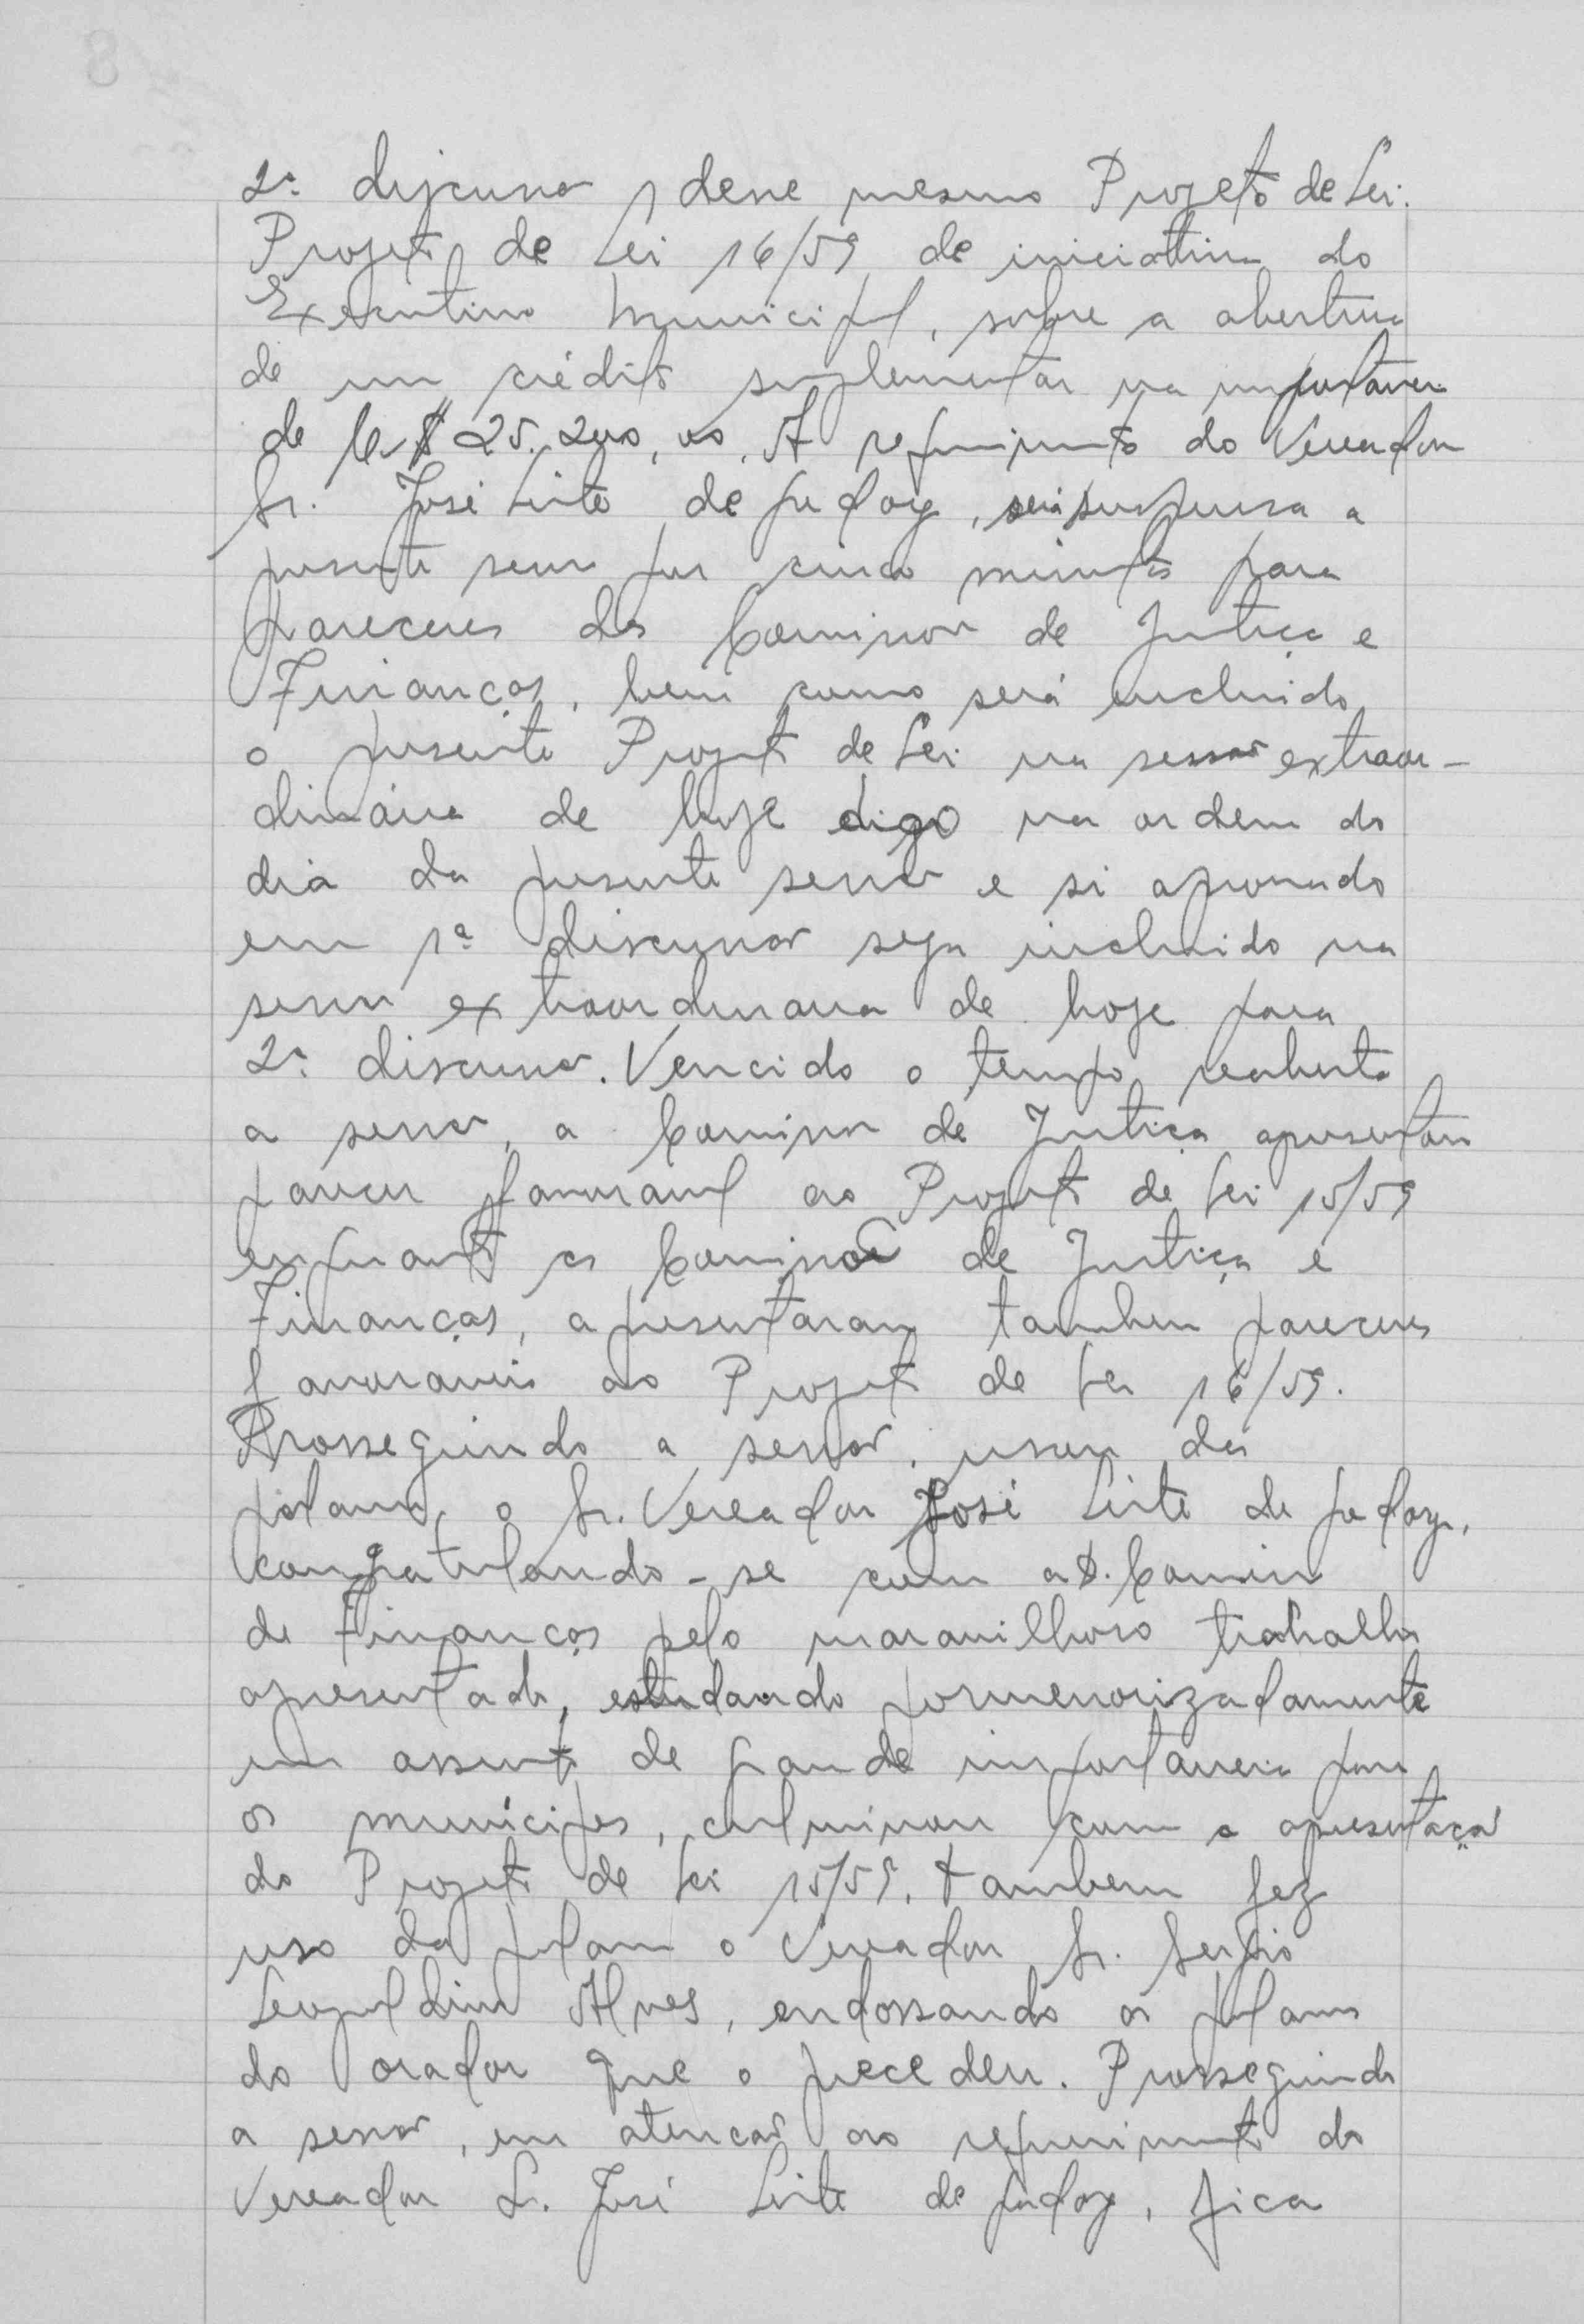 2ª discussão desse mesmo Projeto de Lei.
Projeto de Lei 16/59 de iniciativa do
Executivo Municipal, sobre a abertura
de um crédito suplementar na importancia
de Cr$ 25.200,00. A requerimento do Vereador
Sr. José Leite de Godoy, será suspensa a
presente sessão por cinco minutos para
pareceres das Comissões de Justiça e
Finanças, bem como será incluido
o presente Projeto de Lei na sessão extraor-
dinária de hoje digo na ordem do
dia da presente sessão e si aprovado
em 1ª discussão seja incluido na
sessão extraordinaria de hoje para
2ª discussão. Vencido o tempo, reaberta
a sessão, a Comissão de Justiça apresentou
parecer favoravel ao Projeto de Lei 15/59
enquanto as Comissões de Justiça e
Finanças, apresentaram tambem pareceres
favoraveis ao Projeto de Lei 16/59.
Prosseguindo a sessão, usou da
palavra o Sr. Vereador José Leite de Godoy,
congratulando-se com a D. Comissão
de Finanças pelo maravilhoso trabalho
apresentado, estudando pormenorizadamente
um assunto de grande importancia para
os munícipes, culminou com a apresentação
do Projeto de Lei 15/59. Tambem fez
uso da palavra o Vereador Sr. Sergio
Leopoldino Alves, endossando as palavras
do orador que o precedeu. Prosseguindo
a sessão, em atenção ao requerimento do
Vereador Sr. José Leite de Godoy, fica